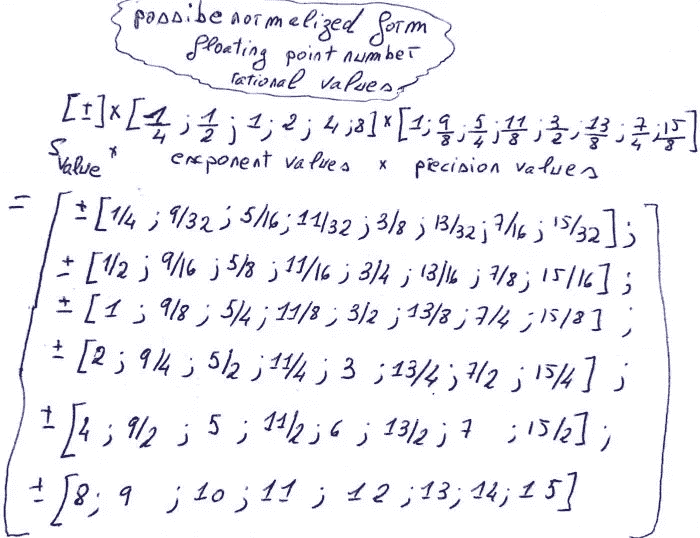 possibe normalized form
floating point number
rational values
[±]×[1/4 ; 1/2 ; 1 ; 2 ; 4 ; 8]×[1 ; 9/8 ; 5/4 ; 11/8 ; 3/2 ; 13/8 ; 7/4 ; 15/8]
S value × exponent values × precision values
= [ ±[1/4 ; 9/32 ; 5/16 ; 11/32 ; 3/8 ; 13/32 ; 7/16 ; 15/32] ;
±[1/2 ; 9/16 ; 5/8 ; 11/16 ; 3/4 ; 13/16 ; 7/8 ; 15/16] ;
±[1 ; 9/8 ; 5/4 ; 11/8 ; 3/2 ; 13/8 ; 7/4 ; 15/8] ;
±[2 ; 9/4 ; 5/2 ; 11/4 ; 3 ; 13/4 ; 7/2 ; 15/4] ;
±[4 ; 9/2 ; 5 ; 11/2 ; 6 ; 13/2 ; 7 ; 15/2] ;
±[8 ; 9 ; 10 ; 11 ; 12 ; 13 ; 14 ; 15] ]